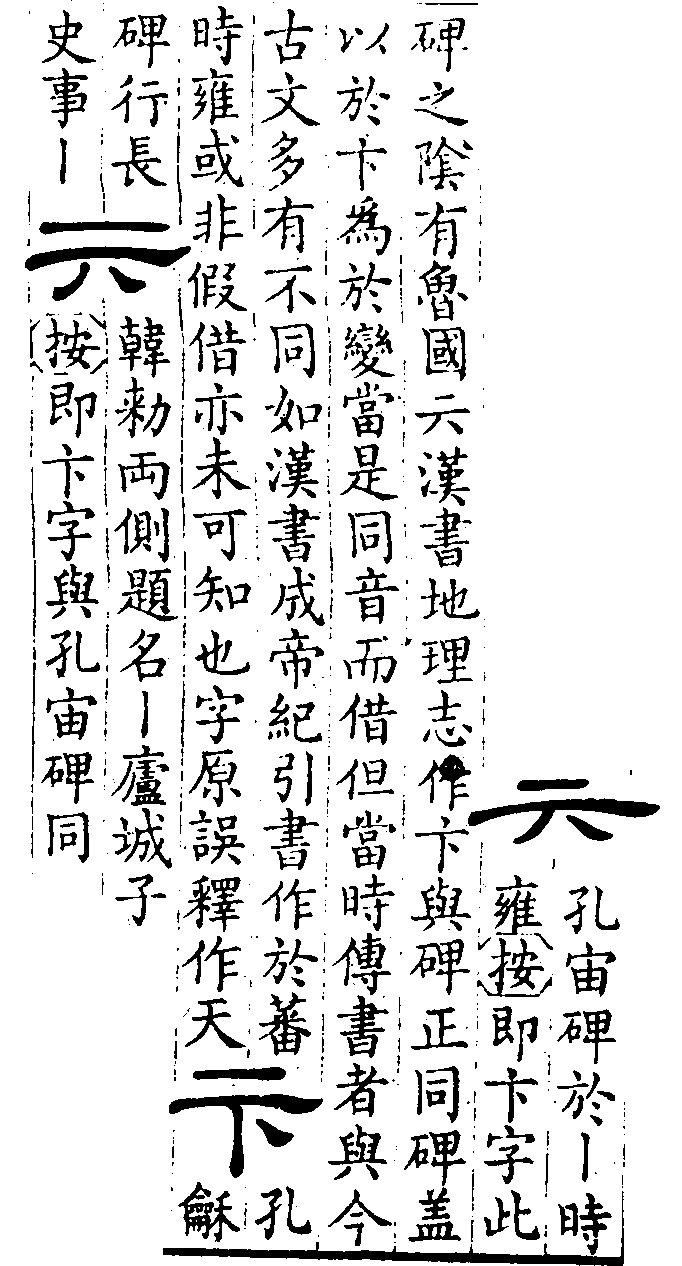 亓
孔宙碑於丨時
雍按即卞字此
碑之陰有魯國亓漢書地理志作卞與碑正同碑盖
以於卞為於變當是同音而借但當時傳書者與今
古文多有不同如漢書成帝紀引書作於蕃
時雍或非假借亦未可知也字原誤釋作天
卞
孔
龢
碑行長
史事丨
六
韓勑兩側題名丨廬城子
按即卞字與孔宙碑同